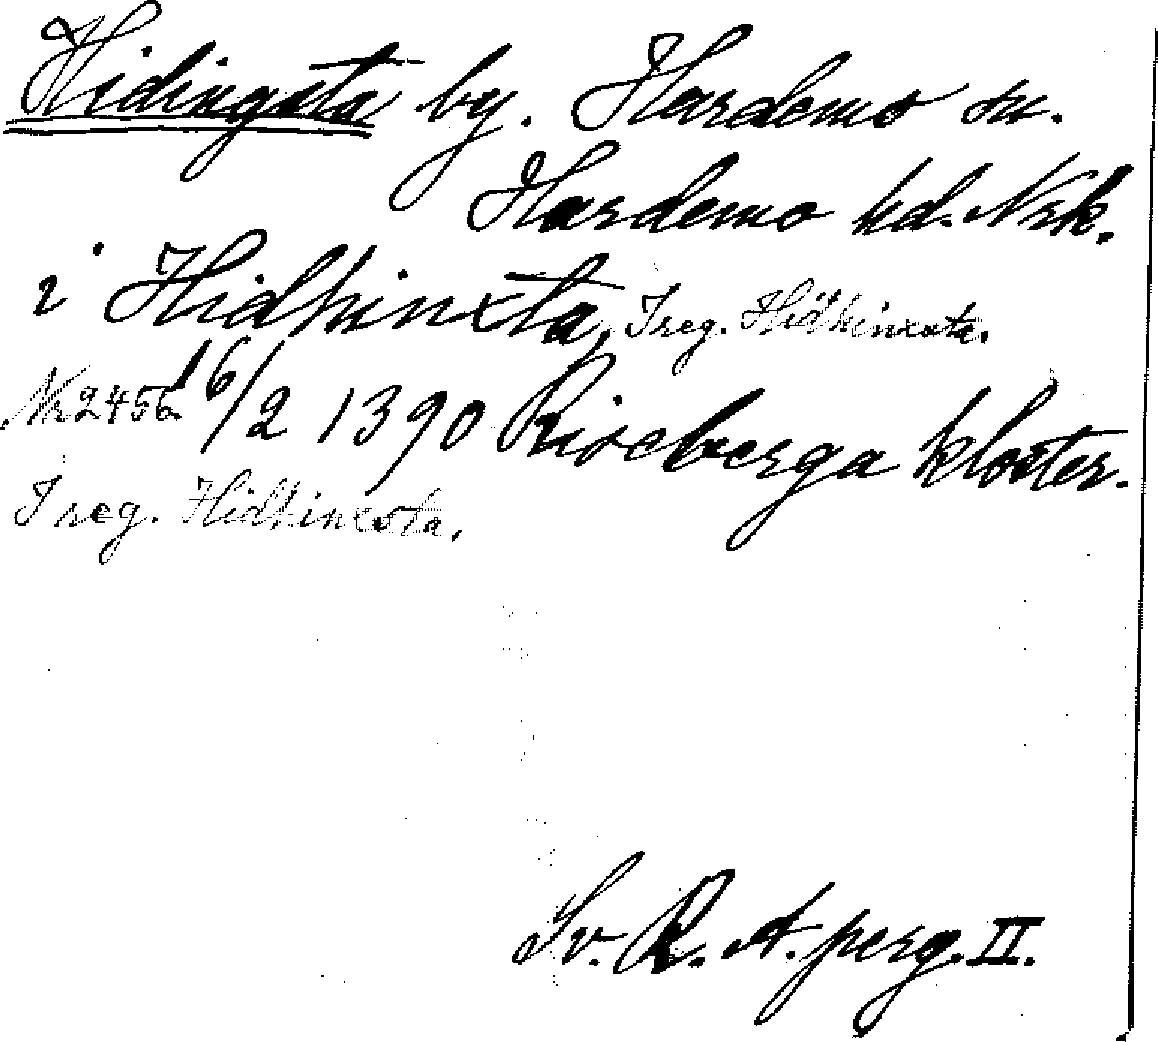 Hidingsta by. Hardemo sn.
Hardemo hd. Nrk.
i Hidhinxta, I reg. Hidhinxsta.
Nr 2456. 16/2 1390 Riseberga kloster.
I reg. Hidhinxsta.
Sv. R. A. perg. II.